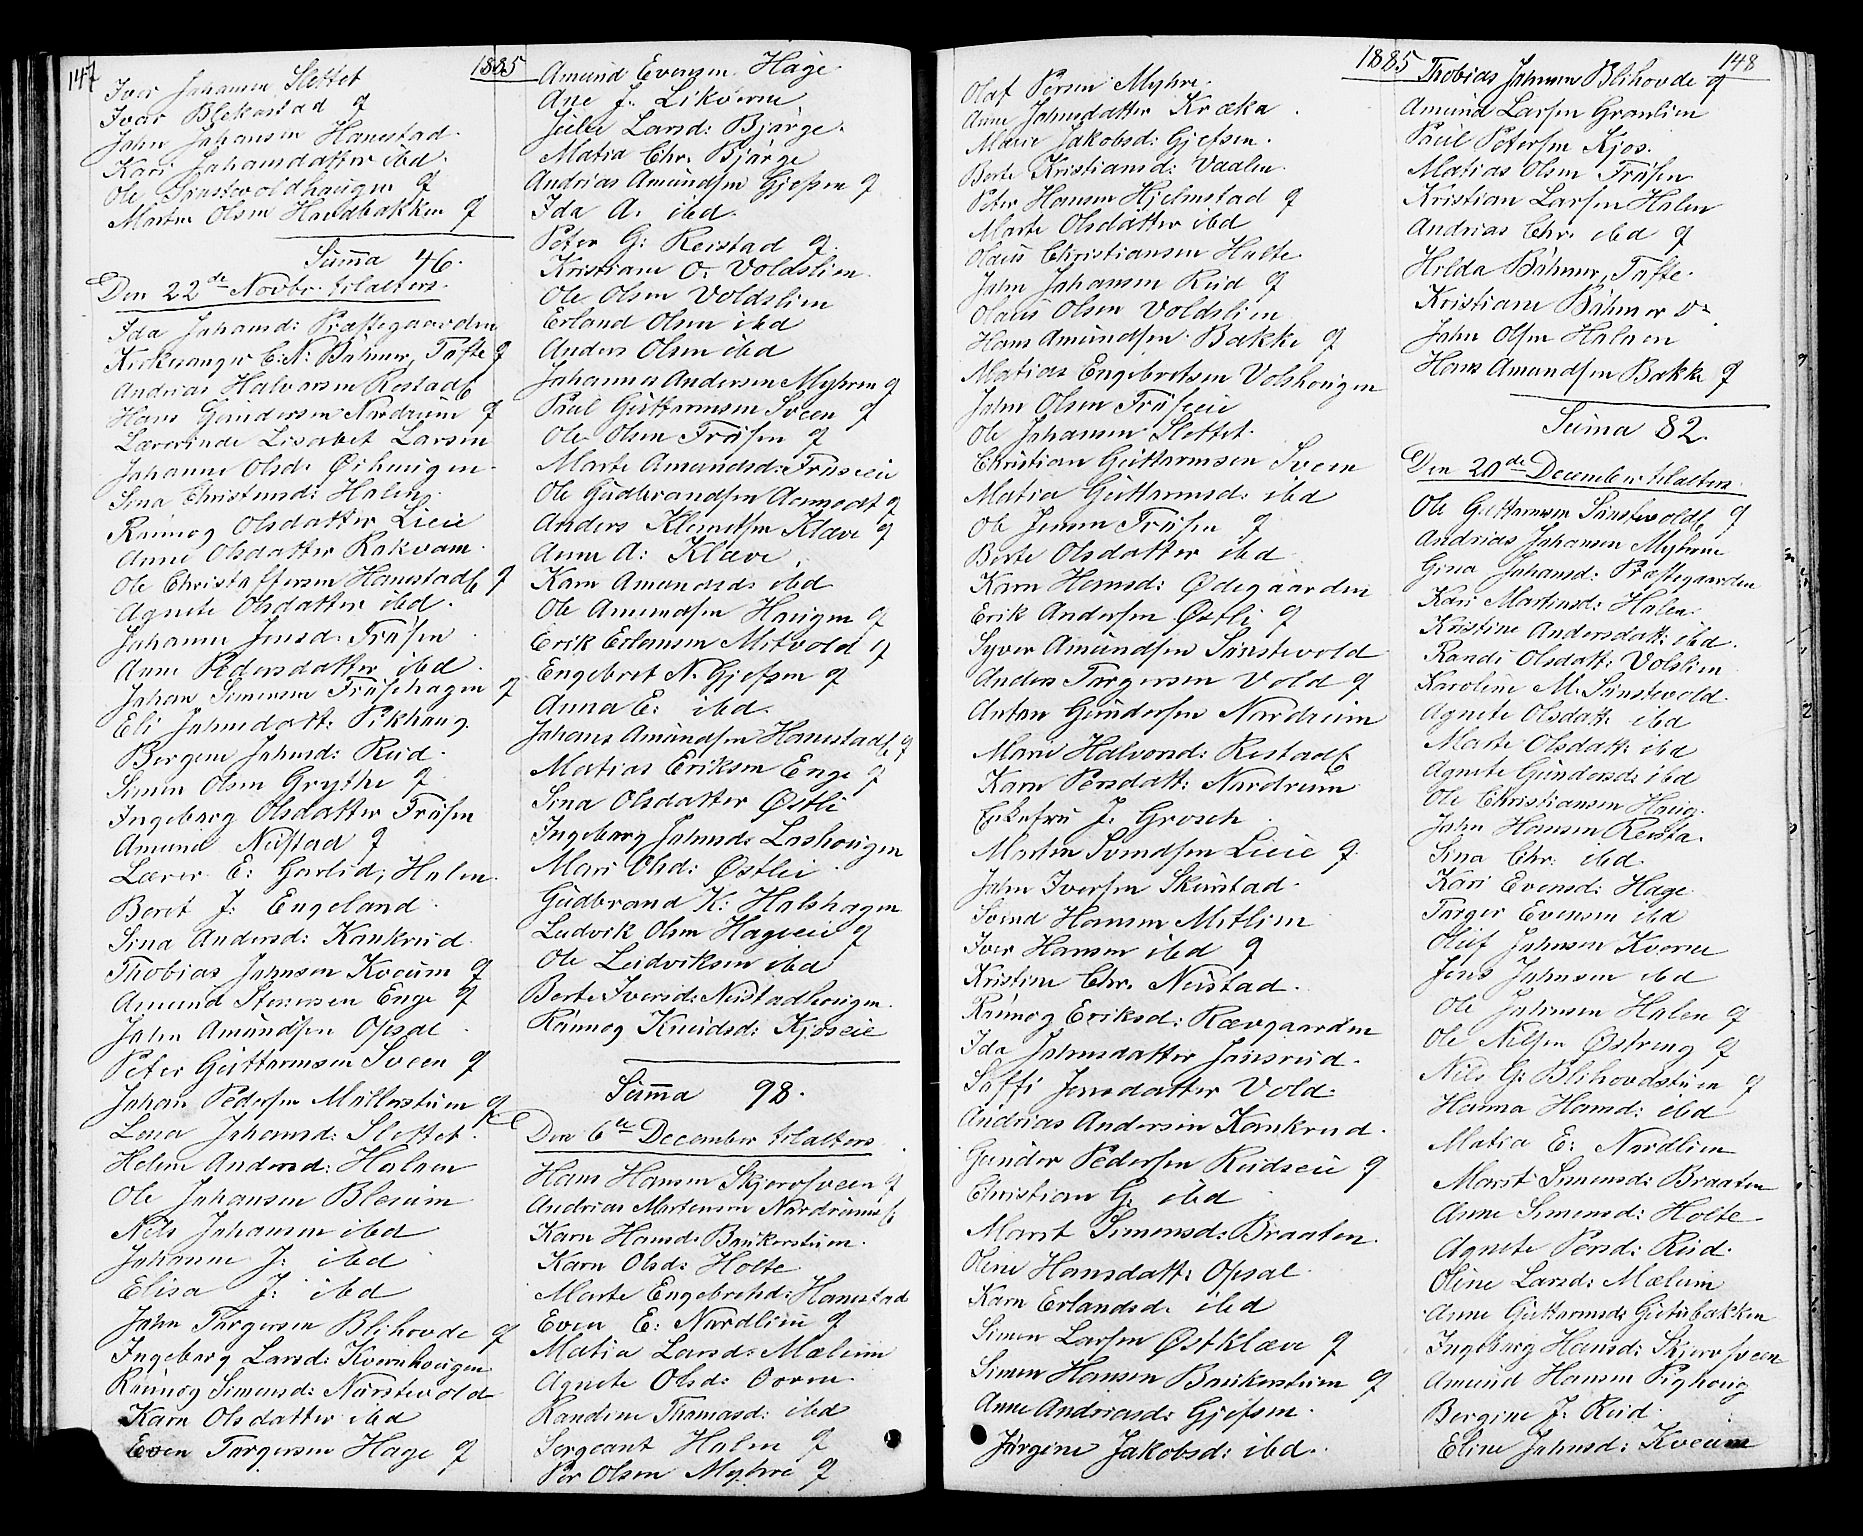 147
1885
Iver Johansen Slettet
Ivar Blekastad q
John Johansen Hanestad.
Kari Johansdatter ibd.
Ole Sønstevoldhaugen q
Martin Olsen Haudbakken q
Suma 46.
Den 22de Novbr. tilalters.
Ida Johansd: Præstegaarden
Kirkesanger C. N: Böhmer, Tofte q
Andrias Halvorsen Rostad
Hans Gundersen Nordrum q
Lærerinde Lisabet Larsen
Johanne Olsd: Örhaugen.
Sina Christensd: Halen
Rannog Olsdatter Lieie
Anne Olsdatter Rakvam.
Ole Christoffersen Hanestad q
Agnete Olsdatter ibd.
Johanne Jensd: Fröisen
Anne Pedersdatter ibd.
Johan Simensen Fröisehagen q
Eli Johnsdatt: Pikhaug
Bergine Johnsd: Rud.
Simen Olsen Grythe q
Ingeborg Olsdatter Fröisen
Amund Nustad q
Lærer E: Garlid, Halen.
Berit J: Engeland.
Sina Andersd: Kankrud.
Thobias Johnsen Kveum q
Amund Stenersen Enge q
John Amundsen Opsal.
Peter Guttormsen Sveen q
Johan Pedersen Mullerstuen q
Lena Johansd: Slettet.
Helene Andersd: Halsen
Ole Johansen Blesum
Nils Johansen ibd
Johanne J: ibd
Elisa J: ibd
John Torgersen Blihovde q
Ingeborg Larsd: Kvernhaugen
Rannog Simensd: Nørstevold
Karn Olsdatter ibd
Even Torgersen Hage q
Amund Evensen Hage.
Ane J. Likverne
Julie Larsd: Bjørge.
Matia Chr. Bjørge
Andrias Amundsen Gjefsen q
Ida A. ibd.
Peter G: Reistad q.
Kristiane O. Voldslien.
Ole Olsen Voldslien
Erland Olsen ibd
Anders Olsen ibd
Johannes Andersen Myhren q
Paul Guttormsen Sveen q
Ole Olsen Fröisen q
Marte Amundsd: Fröiseie
Ole Gudbrandsen q
Anders Klemetsen Klæve q
Anne A: Klæve.
Karn Amundsd: ibd
Ole Amundsen Haugen q
Erik Erlansen Mitvold q
Engebret N. Gjefsen q
Anna E: ibd.
Johans Amundsen Hanestad q
Matias Eriksen Enge q
Sina Olsdatter Østli
Ingeborg Johnsd: Loshougen
Mari Olsd: Østlie.
Gudbrand K: Halshagen
Ludvik Olsen Hageeie q
Ole Ludviksen ibd
Berte Iversd: Neistadhougen.
Rannog Knudsd: Kjoseie
Suma 98.
Den 6te December tilalters.
Hans Hansen Skjervfveen q
Andrias Mortensen Nordrum
Karn Hansd: Baukerstuen.
Karn Olsd: Holte
Marte Engebretsd: Hanestad
Even E. Nordlien q
Matia Larsd: Mælum
Agnete Olsd: Ooren
Randine Thomasd: ibd
Sergeant Halen q
Per Olsen Myhre q
1885
148
Olaf Persen Myhre.
Anne Johnsdatter Kræka.
Marie Jakobsd: Gjefsen.
Berte Kristiansd: Vaalen.
Peter Hansen Hjelmstad q
Marte Olsdatter ibd
Olaus Christiansen Holte.
John Johansen Rud q
Olaus Olsen Voldslien
Hans Amundsen Bakke q
Matias Engebretsen Volshougen
John Olsen Fröiseie
Ole Johansen Slettet.
Christian Guttormsen Sveen
Matia Guttormsd: ibd
Ole Jensen Fröisen q
Berte Olsdatter ibd
Karn Hansd: Ødegaarden
Erik Andersen Østli q
Syver Amundsen Sønstevold
Anders Torgersen Vold q
Anton Gundersen Nordrum
Mari Halvorsd: Rostad
Karn Persdatt: Nordrum
Enkefru J. Grosch.
Martin Svendsen Lieie q
John Iversen Skurstad.
Svend Hansen Mitlien
Iver Hansen ibd q
Kristine Chr. Neistad.
Rannog Eriksd: Rævgaarden
Ida Johnsdatter Jansrud.
Soffi Jensdatter Vold.
Andrias Andersen Kankrud.
Gunder Pedersen Rudseie q
Christian G: ibd
Marit Simensd: Braaten.
Oline Hansdatt: Opsal
Karn Erlandsd: ibd
Simen Larsen Østklæve q
Simen Hansen Baukerstuen q
Anne Andriasd: Gjefsen.
Jørgine Jakobsd: ibd.
Thobias Johnsen Blihovde q
Amund Larsen Granlien
Paul Petersen Kjos.
Matias Olsen Fröisen
Kristian Larsen Halen
Andrias Chr. ibd q
Hilda Böhmer, Tofte.
Kristiane Böhmer Do.
John Olsen Halsen
Hans Amundsen Bakke q
Suma 82.
Den 20de December tilalters.
Ole Guttormsen Sønstevold q
Andrias Johansen Myhren
Gina Johansd: Præstegaarden
Kari Martinsd: Halen.
Kristine Andersdatt: ibd.
Randi Olsdatt: Volslien
Karoline M. Sønstevold.
Agnete Olsdatt: ibd
Marte Olsdatt: ibd
Agnete Gundersd: ibd
Ole Christiansen Haug.
John Hansen Reista.
Sina Chr. ibd.
Kari Evensd: Hage
Torger Evensen ibd
Oluf Johnsen Kverne
Jens Johnsen ibd
Ole Johnsen Halen q
Ole Nilsen Østreng q
Nils G: Blihovdstuen q
Hanna Hansd: ibd
Matia E: Nordlien
Marit Simensd: Braaten
Anne Simensd: Holte
Agnete Persd: Rud.
Oline Larsd: Mælum
Anne Guttormsd: Gutubakken
Ingeborg Hansd: Skjervsveen
Amund Hansen Pighoug
Bergine J. Rud.
Eline Johnsd: Kveum